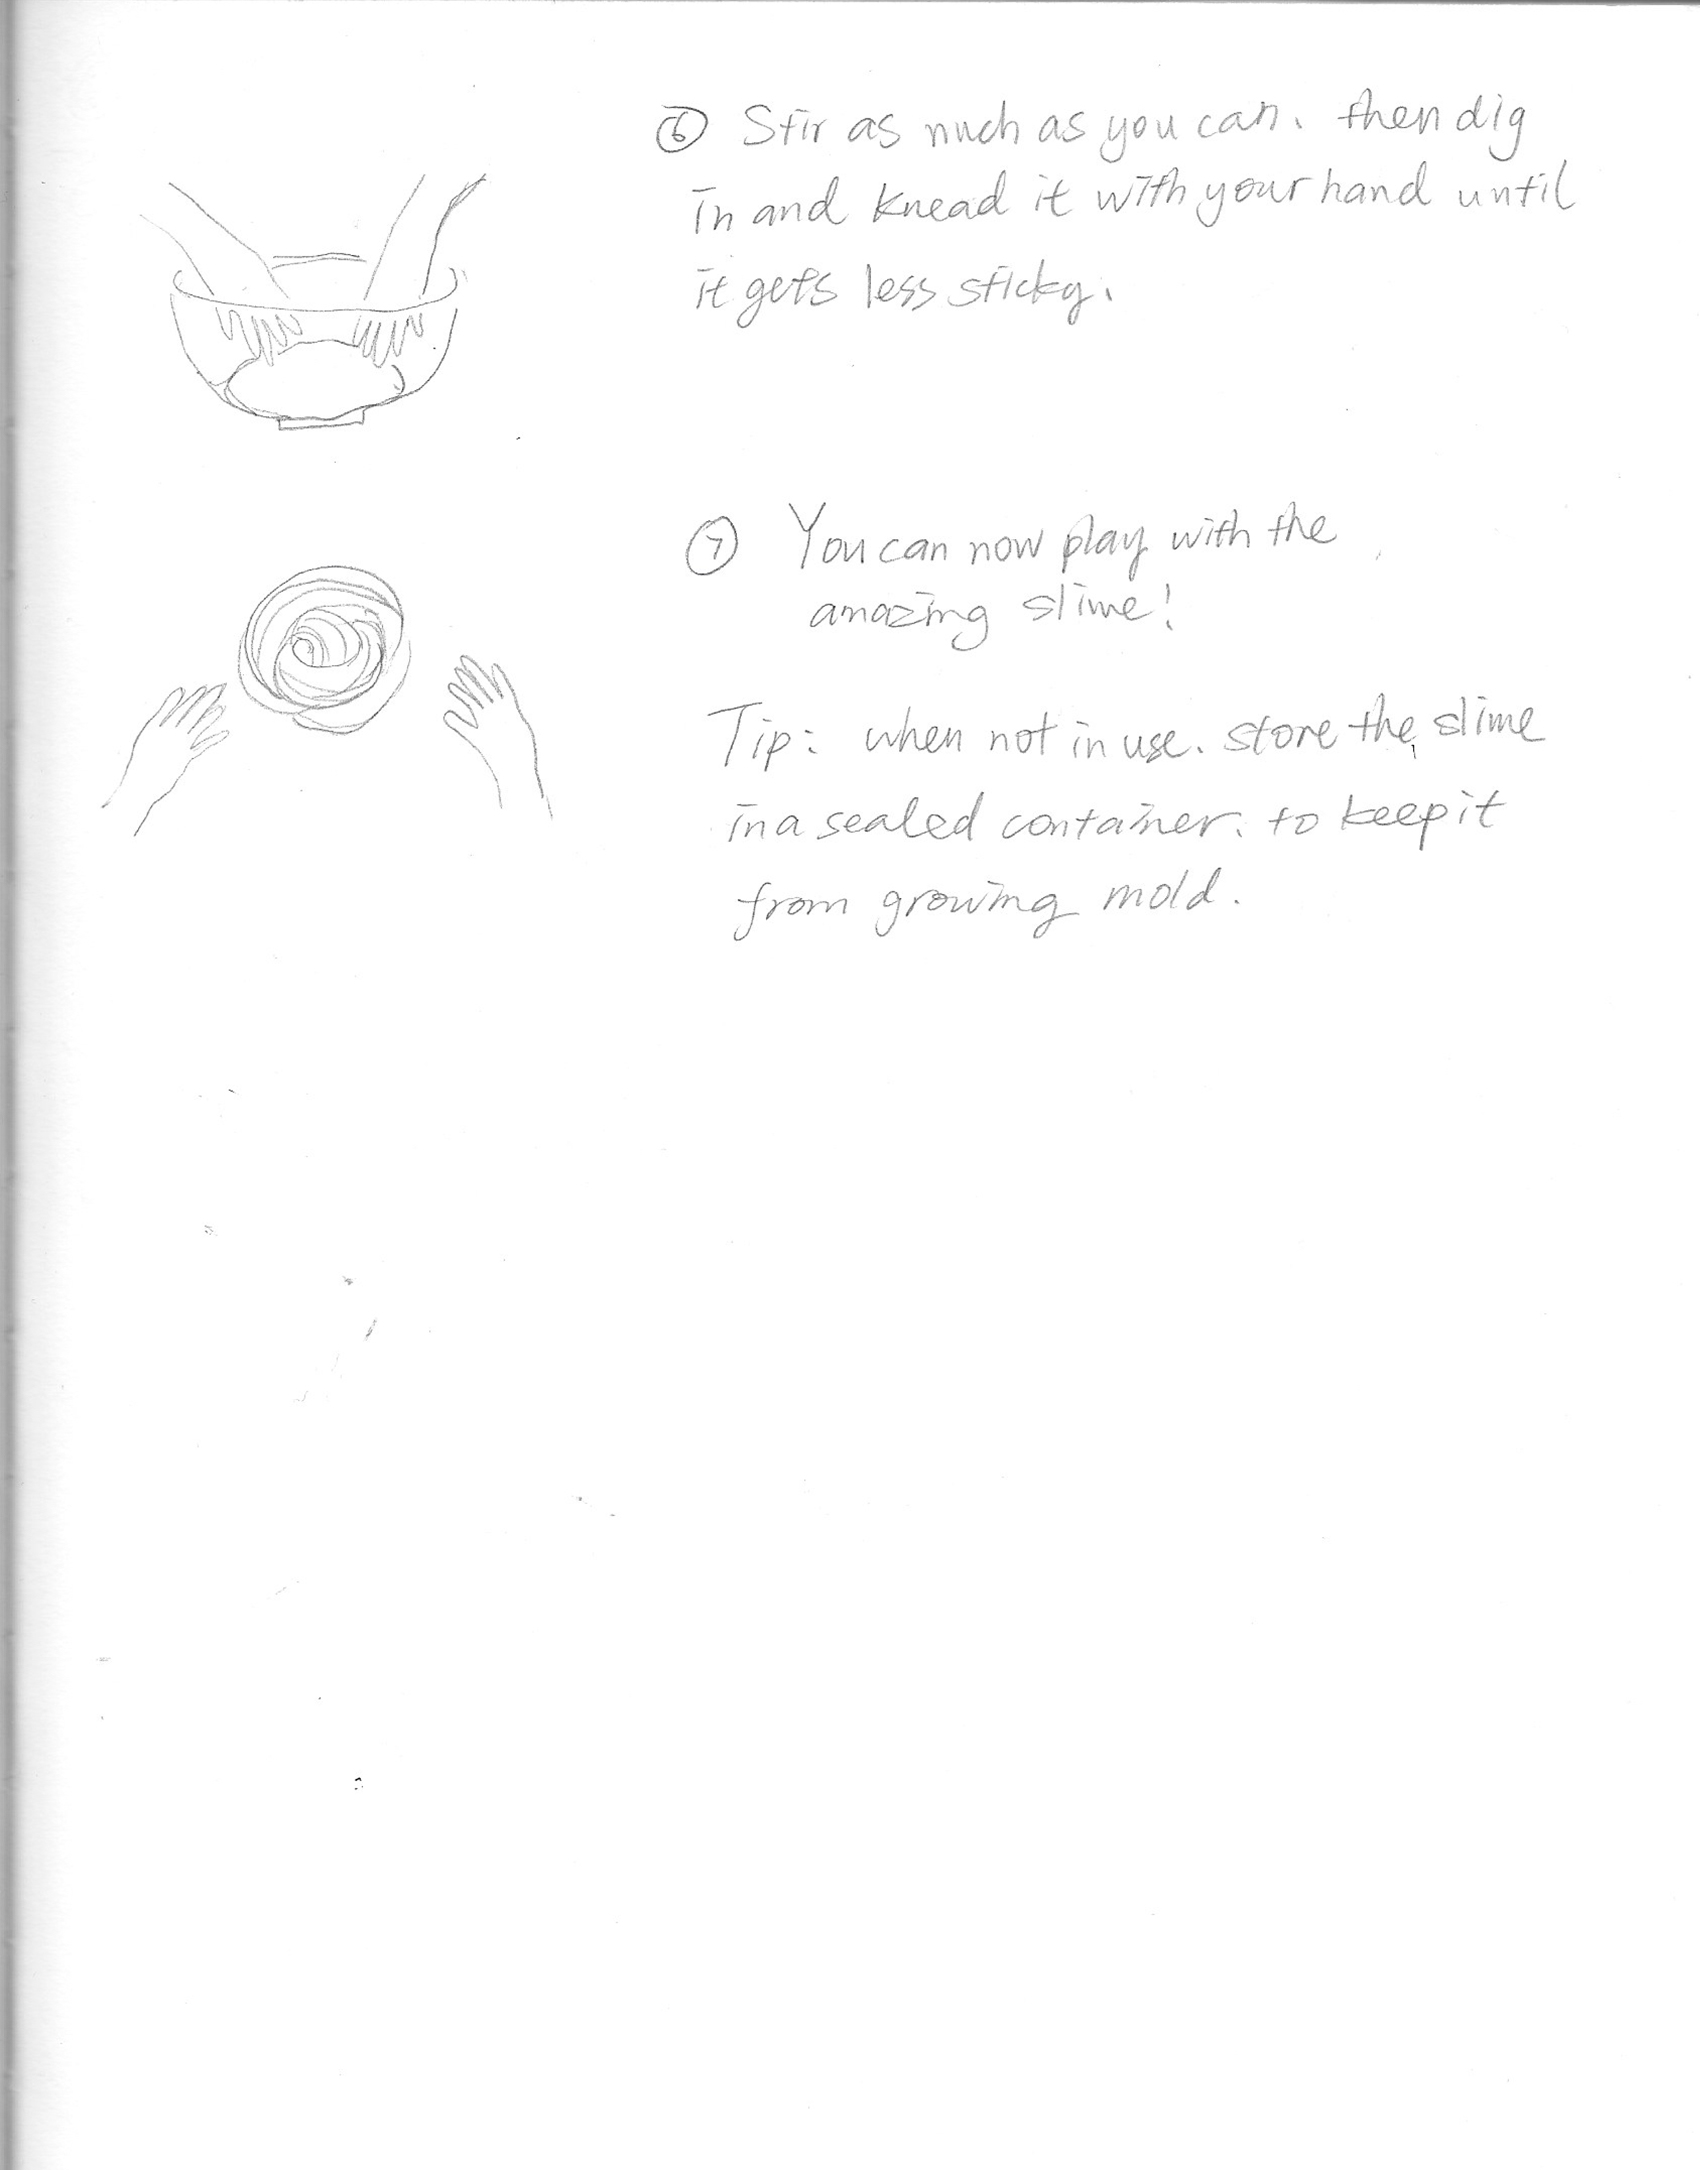 ⑥ Stir as much as you can. then dig
in and knead it with your hand until
it gets less sticky.
⑦ You can now play with the
amazing slime!
Tip: when not in use. store the slime
in a sealed container. to keep it
from growing mold.